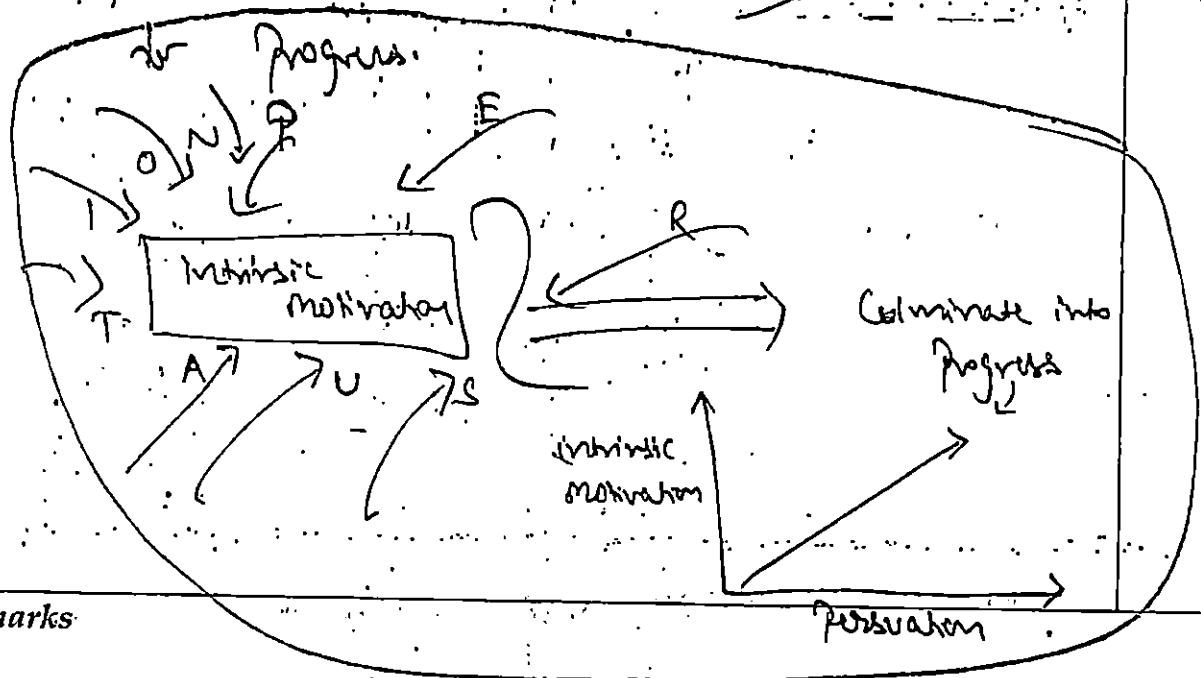 Progress.
E
N
P
O
R
I
Intrinsic
Motivation
T
Culminate into
Progress
A
U
S
intrinsic
Motivation
Persuation
marks